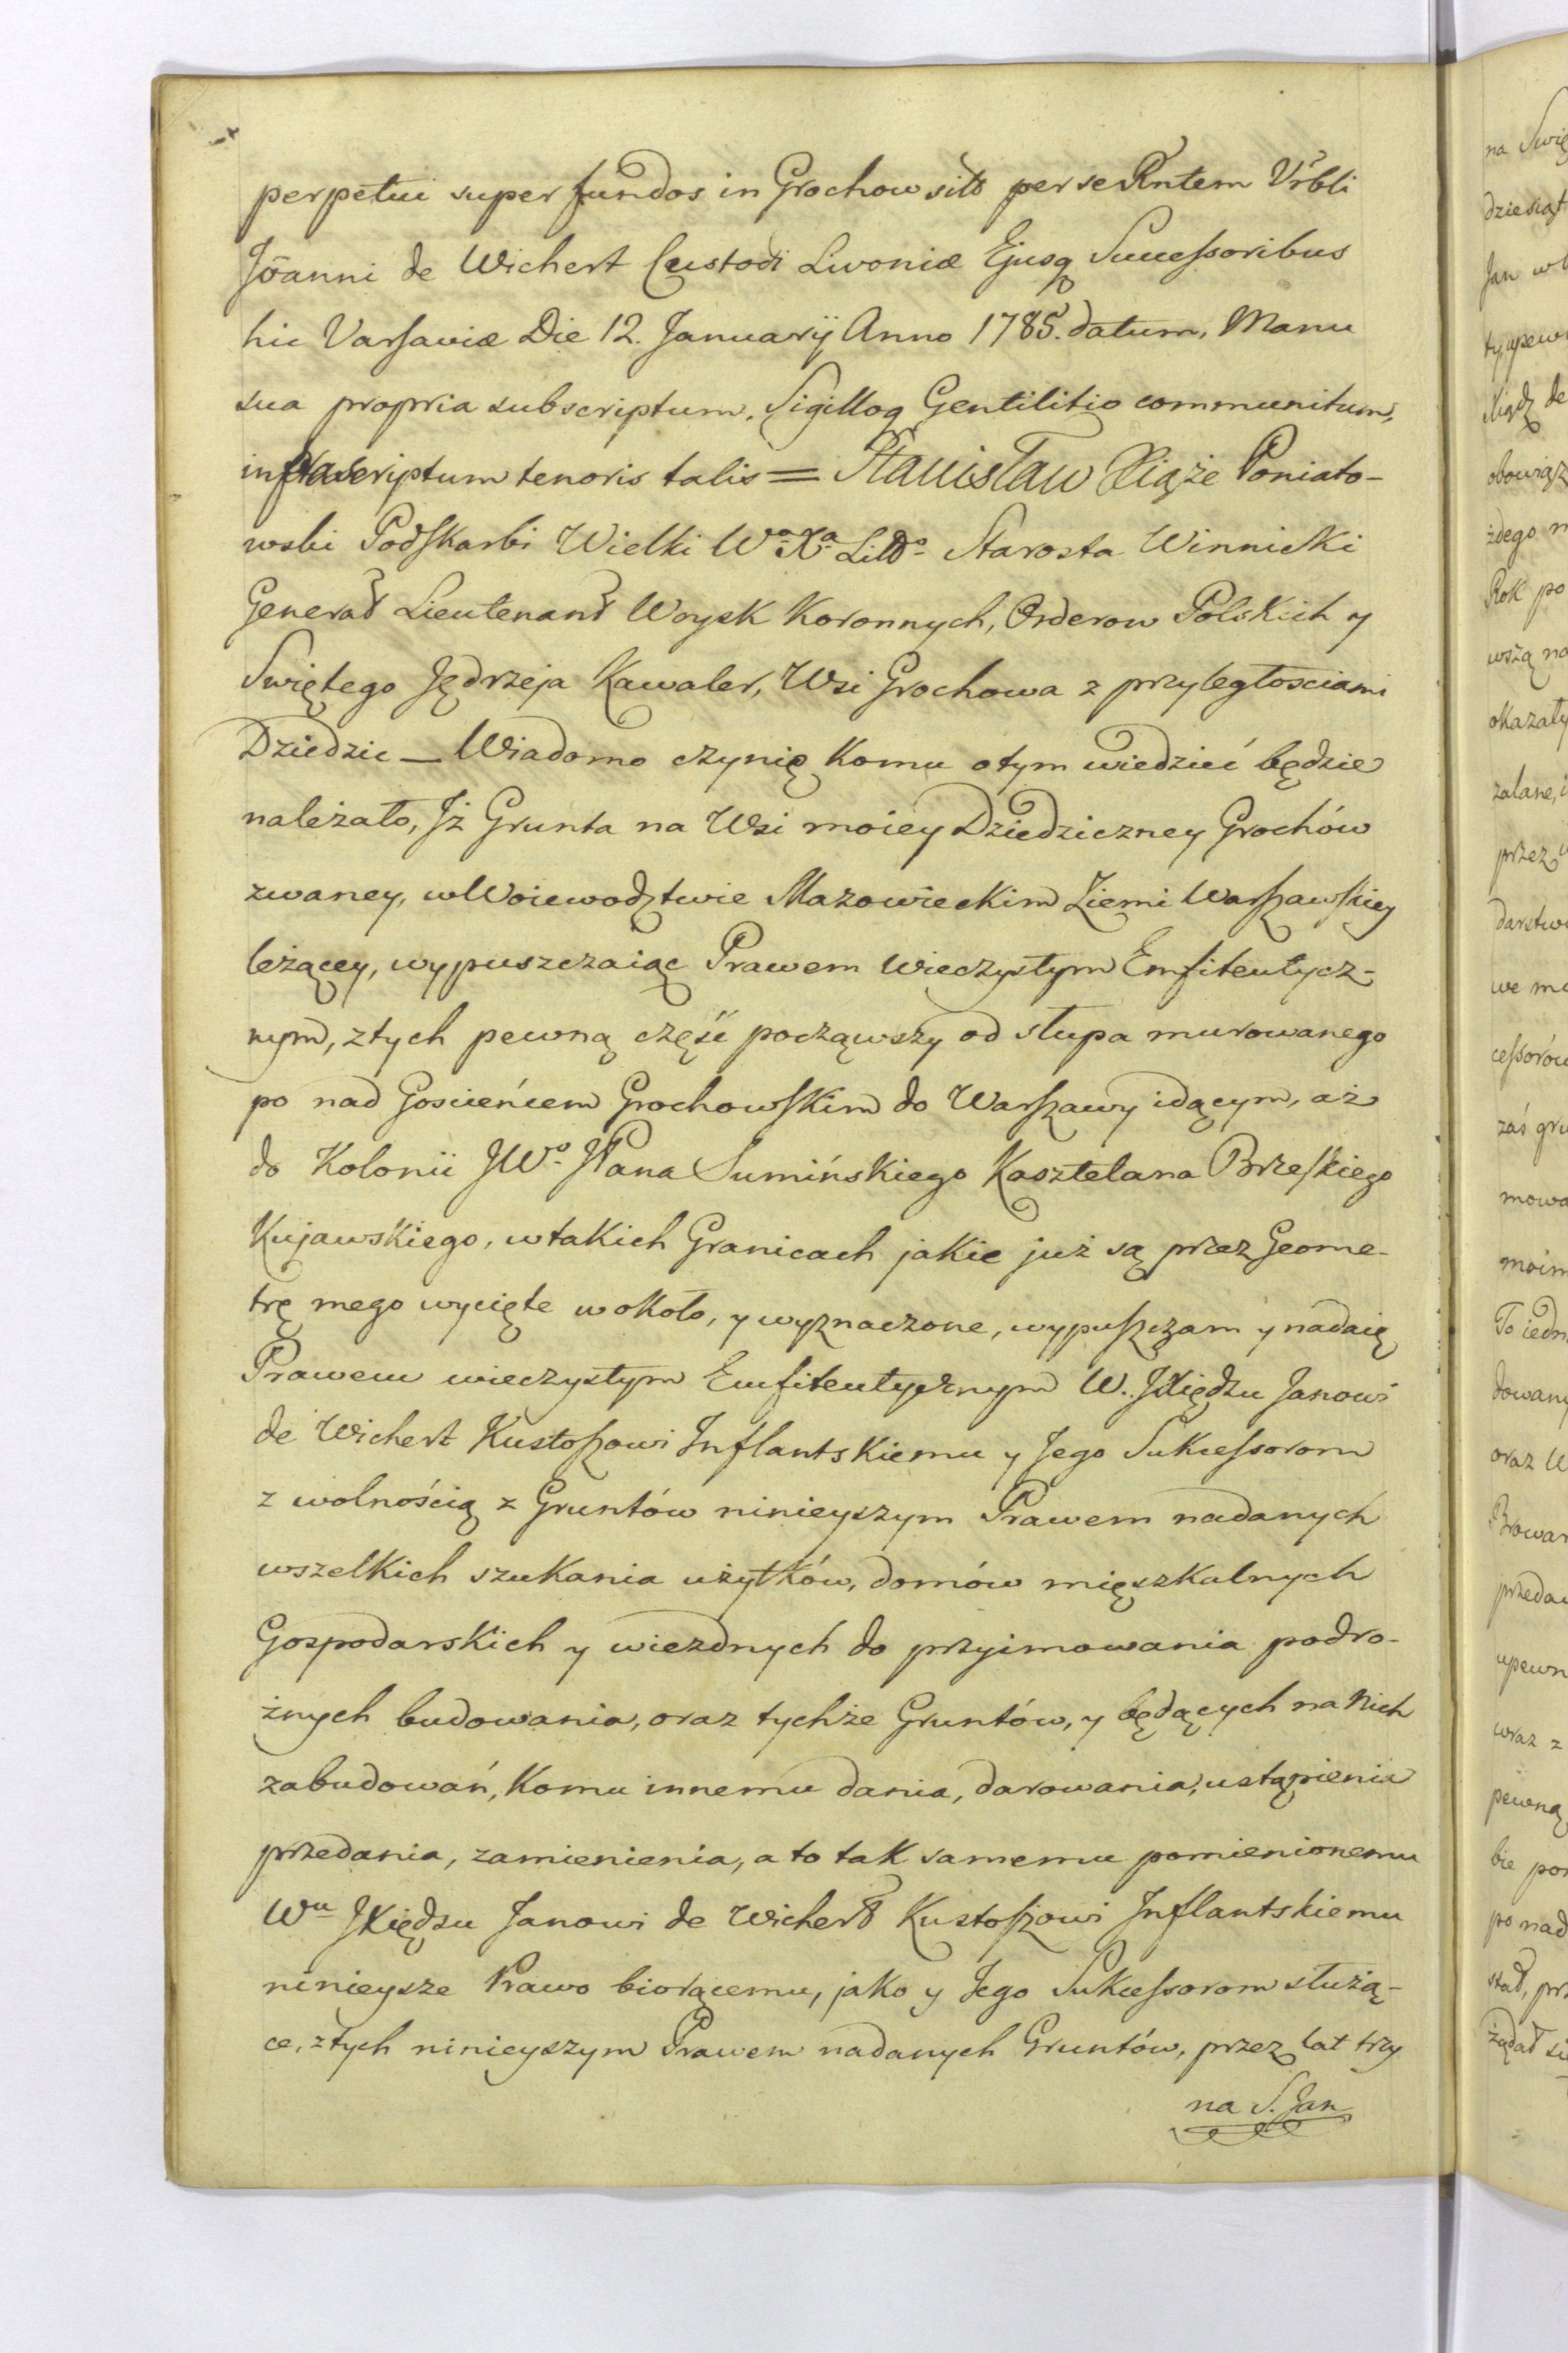 perpetui super fundos in Grochow sito per se Rntem Vrbli
Jōanni de Wichert Custodi Livoniæ Ejusq Successoribus
hic Varsaviæ Die 12. Januarÿ Anno 1785. datum, Manu
sua propria subscriptum, Sigilloq Gentilitio communitum,
infrascriptum tenoris talis = Stanisław Xiąże Poniato-
wski Podskarbi Wielki Wo Xa Litto Starosta Winnicki
Generał Lieutenant Woysk Koronnych, Orderow Polskich y
Swiętego Jędrzeja Kawaler, Wsi Grochowa z przyległosciami
Dziedzic — Wiadomo czynię Komu o tym wiedzieć będzie
należało, Jż Grunta na Wsi moiey Dziedziczney Grochów
zwaney, w Woiewodztwie Mazowieckim Ziemi Warszawskiey
leżącey, wypuszczaiąc Prawem wieczystym Emfiteutycz-
nym, z tych pewną część począwszy od słupa murowanego
po nad Gosciencem Grochowskim do Warszawy idącym, aż
do Kolonii JWo JPana Sumińskiego Kasztelana Brzeskiego
Kujawskiego, w takich Granicach jakie już są przez Geome-
trę mego wycięte wokoło, y wyznaczone, wypuszczam y nadaię
Prawem wieczystym Emfiteutycznym W. JXiędzu Janowi
de Wichert Kustoszowi Inflantskiemu y Jego Sukcessorom
z wolnością z Gruntów ninieyszym Prawem nadanych
wszelkich szukania użytków, domów mięszkalnych
Gospodarskich y wiezdnych do przyimowania podro-
żnych budowania, oraz tychże Gruntów, y będących na Nich
zabudowań, Komu innemu dania, darowania, ustąpienia
przedania, zamienienia, a to tak samemu pomienionemu
Wu JXiędzu Janowi de Wichert Kustoszowi Inflantskiemu
ninieysze Prawo biorącemu, jako y Jego Sukcessorom służą-
ce, z tych ninieyszym Prawem nadanych Gruntów, przez lat trzy
na S. Jan
na Swię
dziesiąt
Jan w
ty, upew
obowiąz
żdego
Rok po
wszą na
okazały
zalane,
przez
darstw
we
cessorów
zaś gru
mowa
moim
To iedn
dowany
oraz
Browar
przeda
upewn
wraz z
pewną
bie
po nad
stał, prz
żądał